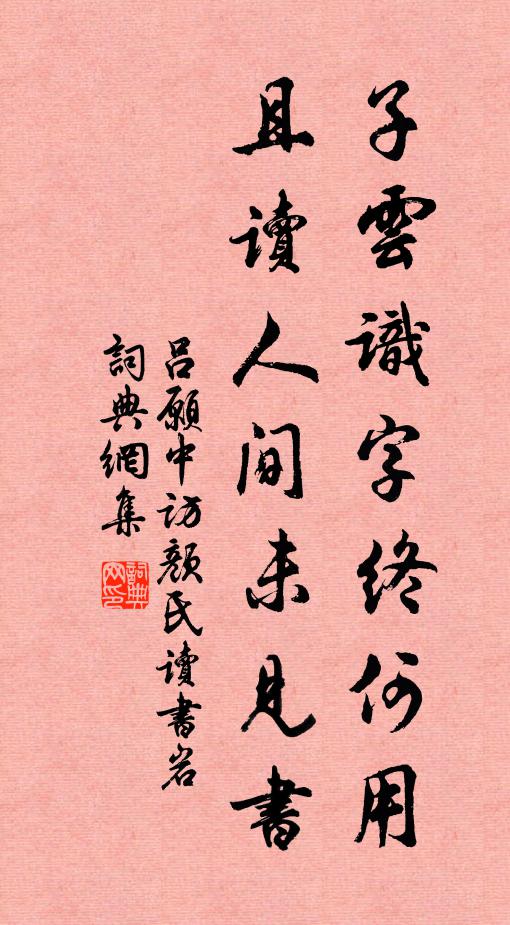 子雲識字終何用
且讀人間未見書
呂願中訪顏氏讀書岩
詞典網集
詞典
网印